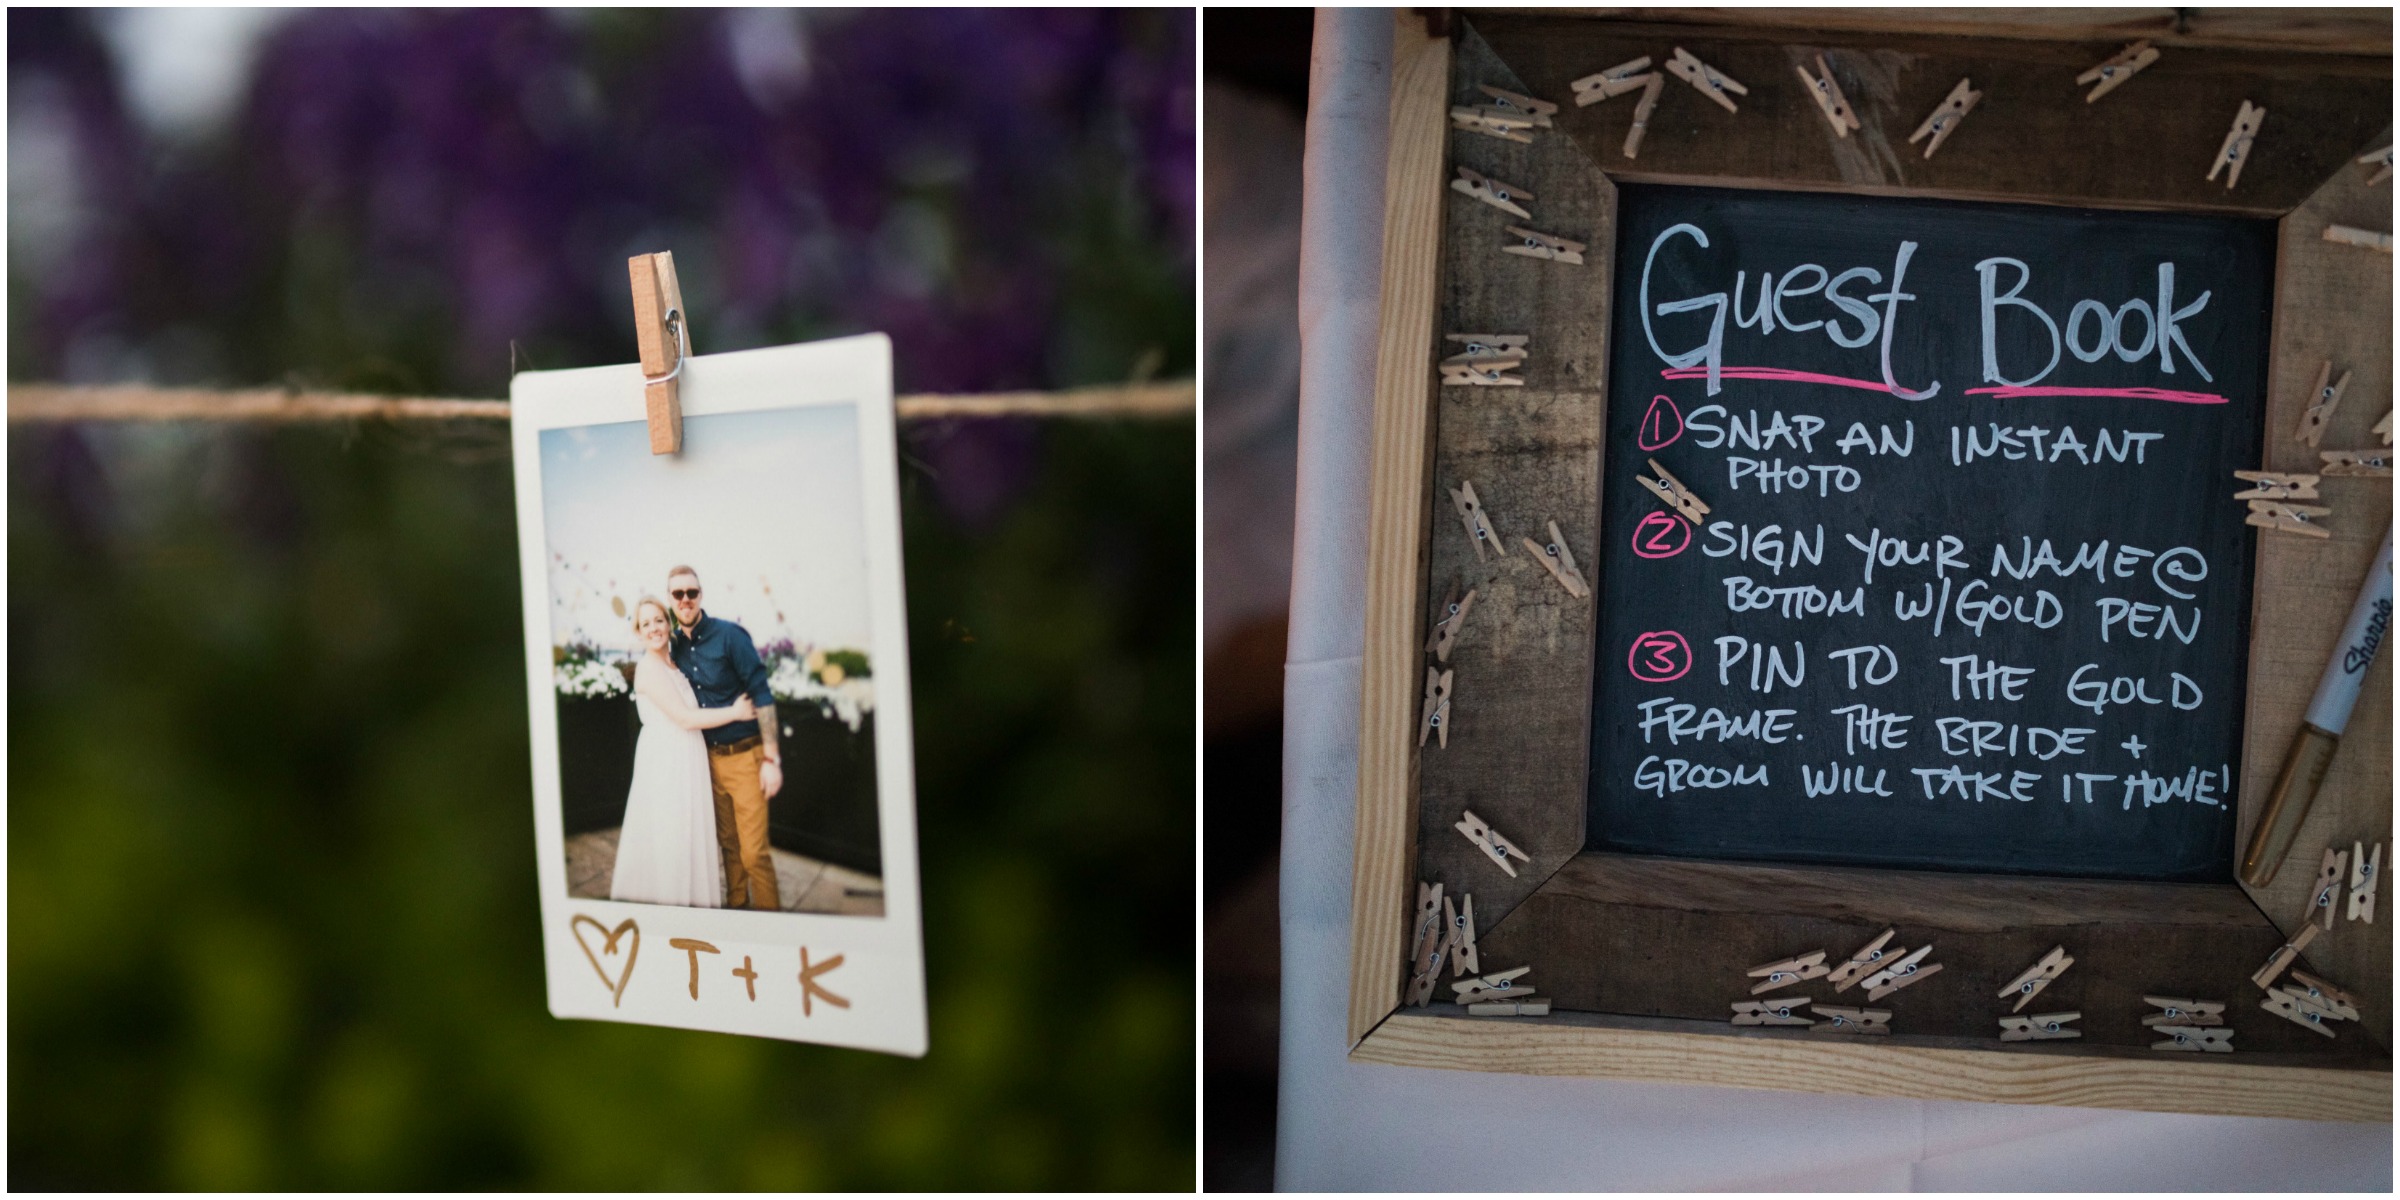 ♡ T + K
Guest Book
① SNAP AN INSTANT
PHOTO
② SIGN YOUR NAME @
BOTTOM W/GOLD PEN
③ PIN TO THE GOLD
FRAME. THE BRIDE +
GROOM WILL TAKE IT HOME!
Sharpie